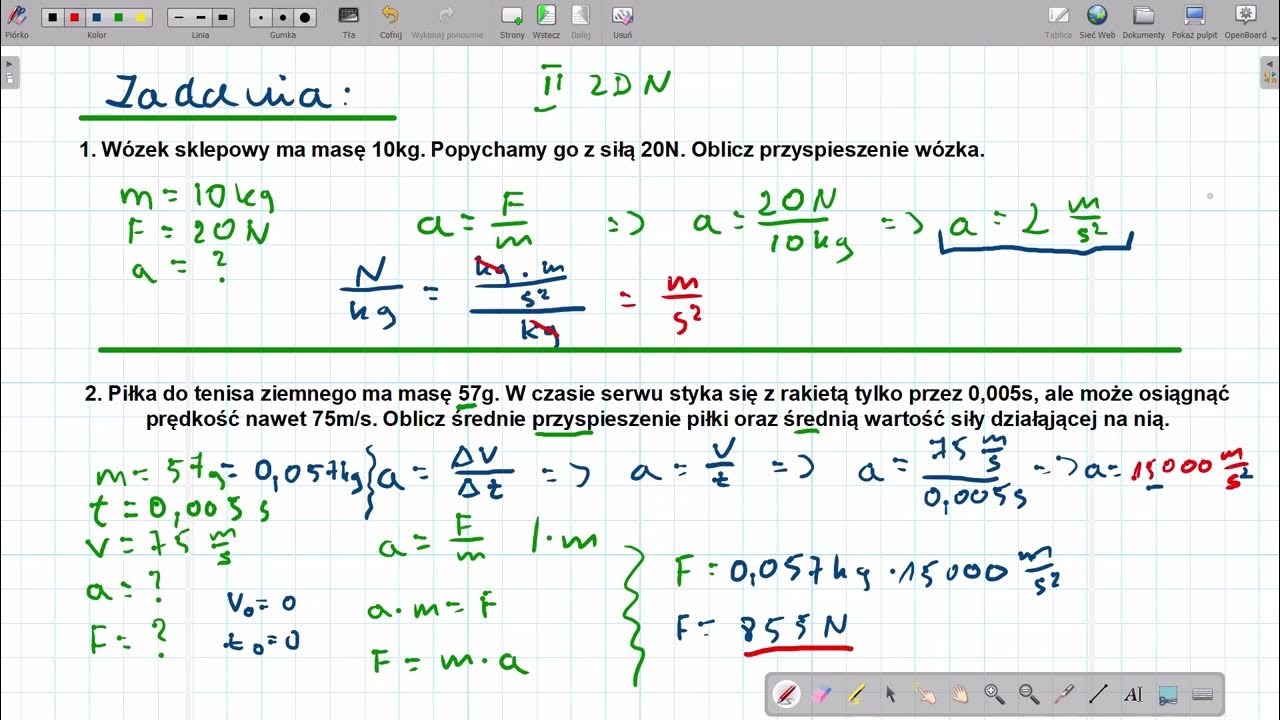 Piórko Kolor Linia Gumka Tła Cofnij Wykonaj ponownie Strony Wstecz Dalej Usuń Tablica Sieć Web Dokumenty Pokaż pulpit OpenBoard
Zadania: II 2DN
1. Wózek sklepowy ma masę 10kg. Popychamy go z siłą 20N. Oblicz przyspieszenie wózka.
m = 10kg
F = 20N
a = ?
a = F/m => a = 20N/10kg => a = 2 m/s²
N/kg = (kg · m/s²)/kg = m/s²
2. Piłka do tenisa ziemnego ma masę 57g. W czasie serwu styka się z rakietą tylko przez 0,005s, ale może osiągnąć
prędkość nawet 75m/s. Oblicz średnie przyspieszenie piłki oraz średnią wartość siły działającej na nią.
m = 57g = 0,057kg
t = 0,005 s
v = 75 m/s
a = ?
F = ?
v₀ = 0
t₀ = 0
a = Δv/Δt => a = v/t => a = 75 m/s / 0,005s => a = 15000 m/s²
a = F/m |·m
a · m = F
F = m · a
F = 0,057kg · 15000 m/s²
F = 855 N
AI